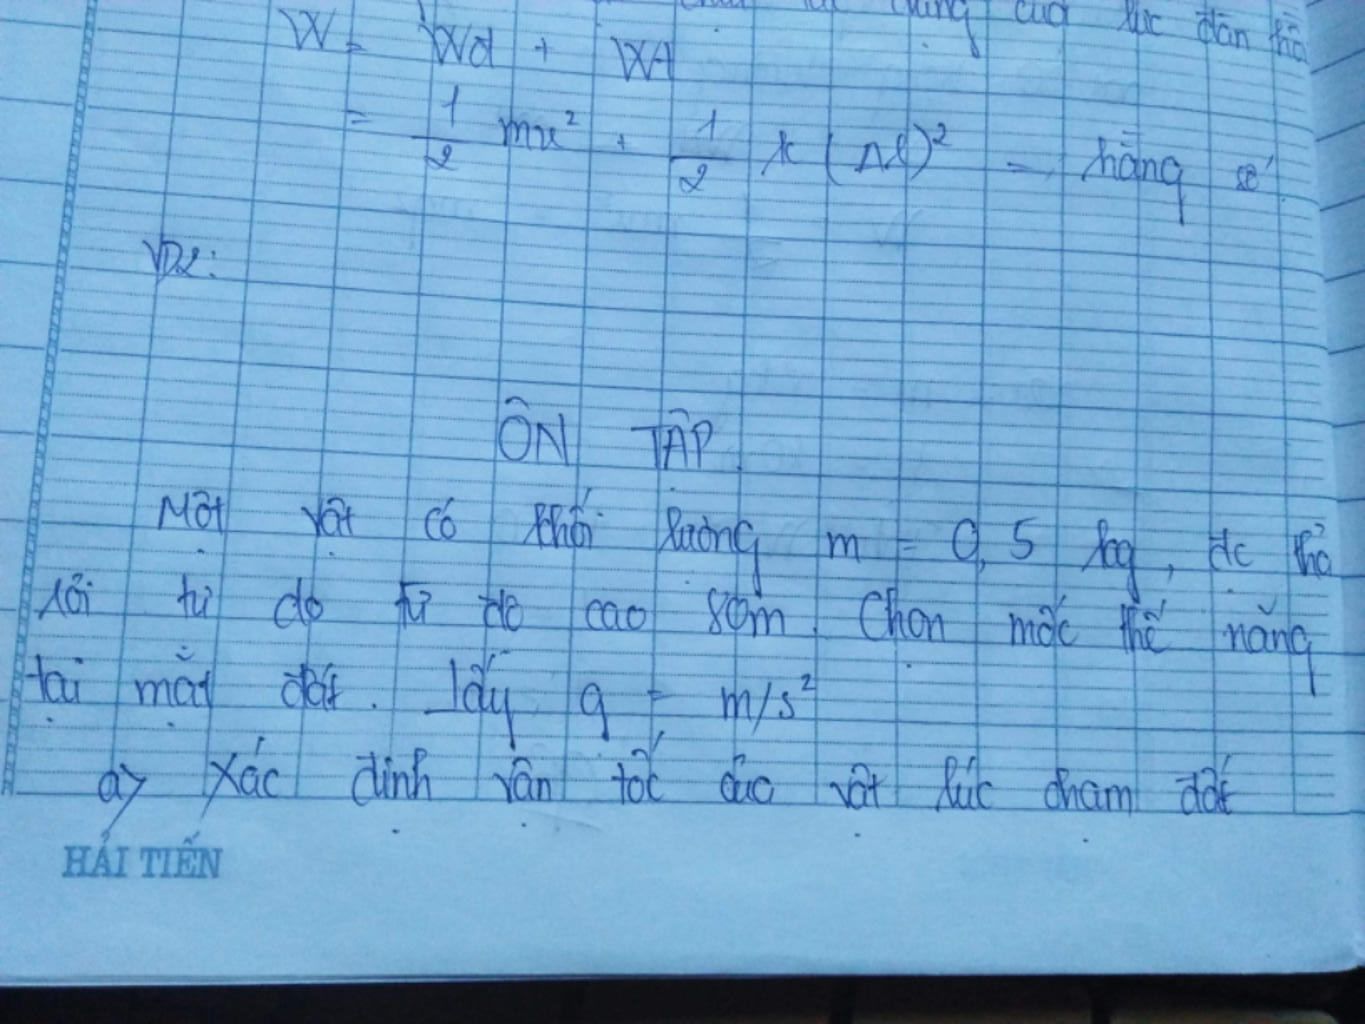 của lực đàn hồi
W = Wđ + Wt
= 1/2 mv² + 1/2 k (Δl)² = hằng số
VD2:
ÔN TẬP
Một vật có khối lượng m = 0,5 kg, đc thả
rơi tự do từ độ cao 80m. Chọn mốc thế năng
tại mặt đất. Lấy g = m/s²
a, Xác định vận tốc của vật lúc chạm đất
HẢI TIẾN